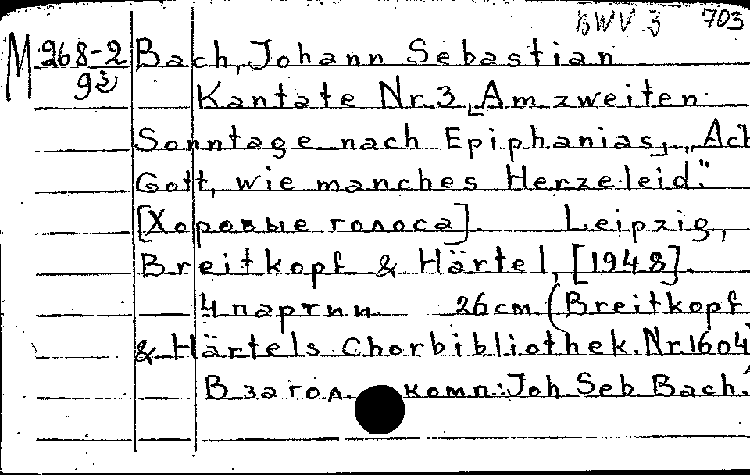 BWV 3 703
M 268-2 Bach, Johann Sebastian
93 Kantate Nr. 3 [Am zweiten
Sonntage nach Epiphanias], „Ach
Gott, wie manches Herzeleid."
[Хоровые голоса]. Leipzig,
Breitkopf & Härtel, [1948].
4 партии 26 cm. (Breitkopf
& Härtels Chorbibliothek. Nr. 1604
В загол. комп.: Joh Seb Bach.